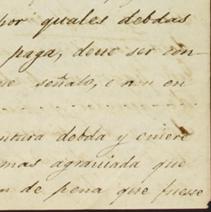 por quales debdas
paga, deue ser con-
ue señalo, e aun en
ntura debda y quiere
mas agraviada que
n de pena que fuesse